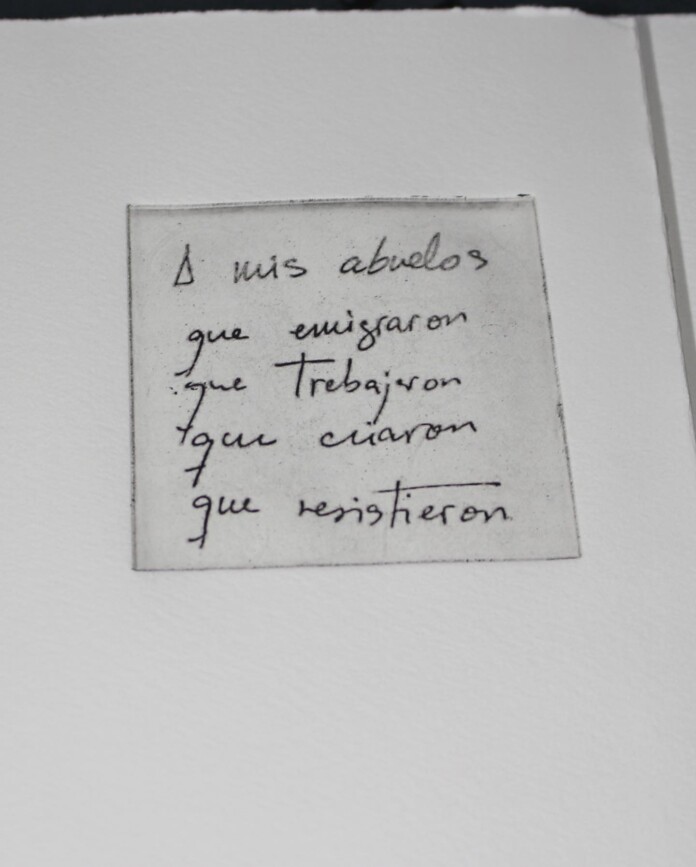 A mis abuelos
que emigraron
que Trebajaron
que criaron
que resistieron